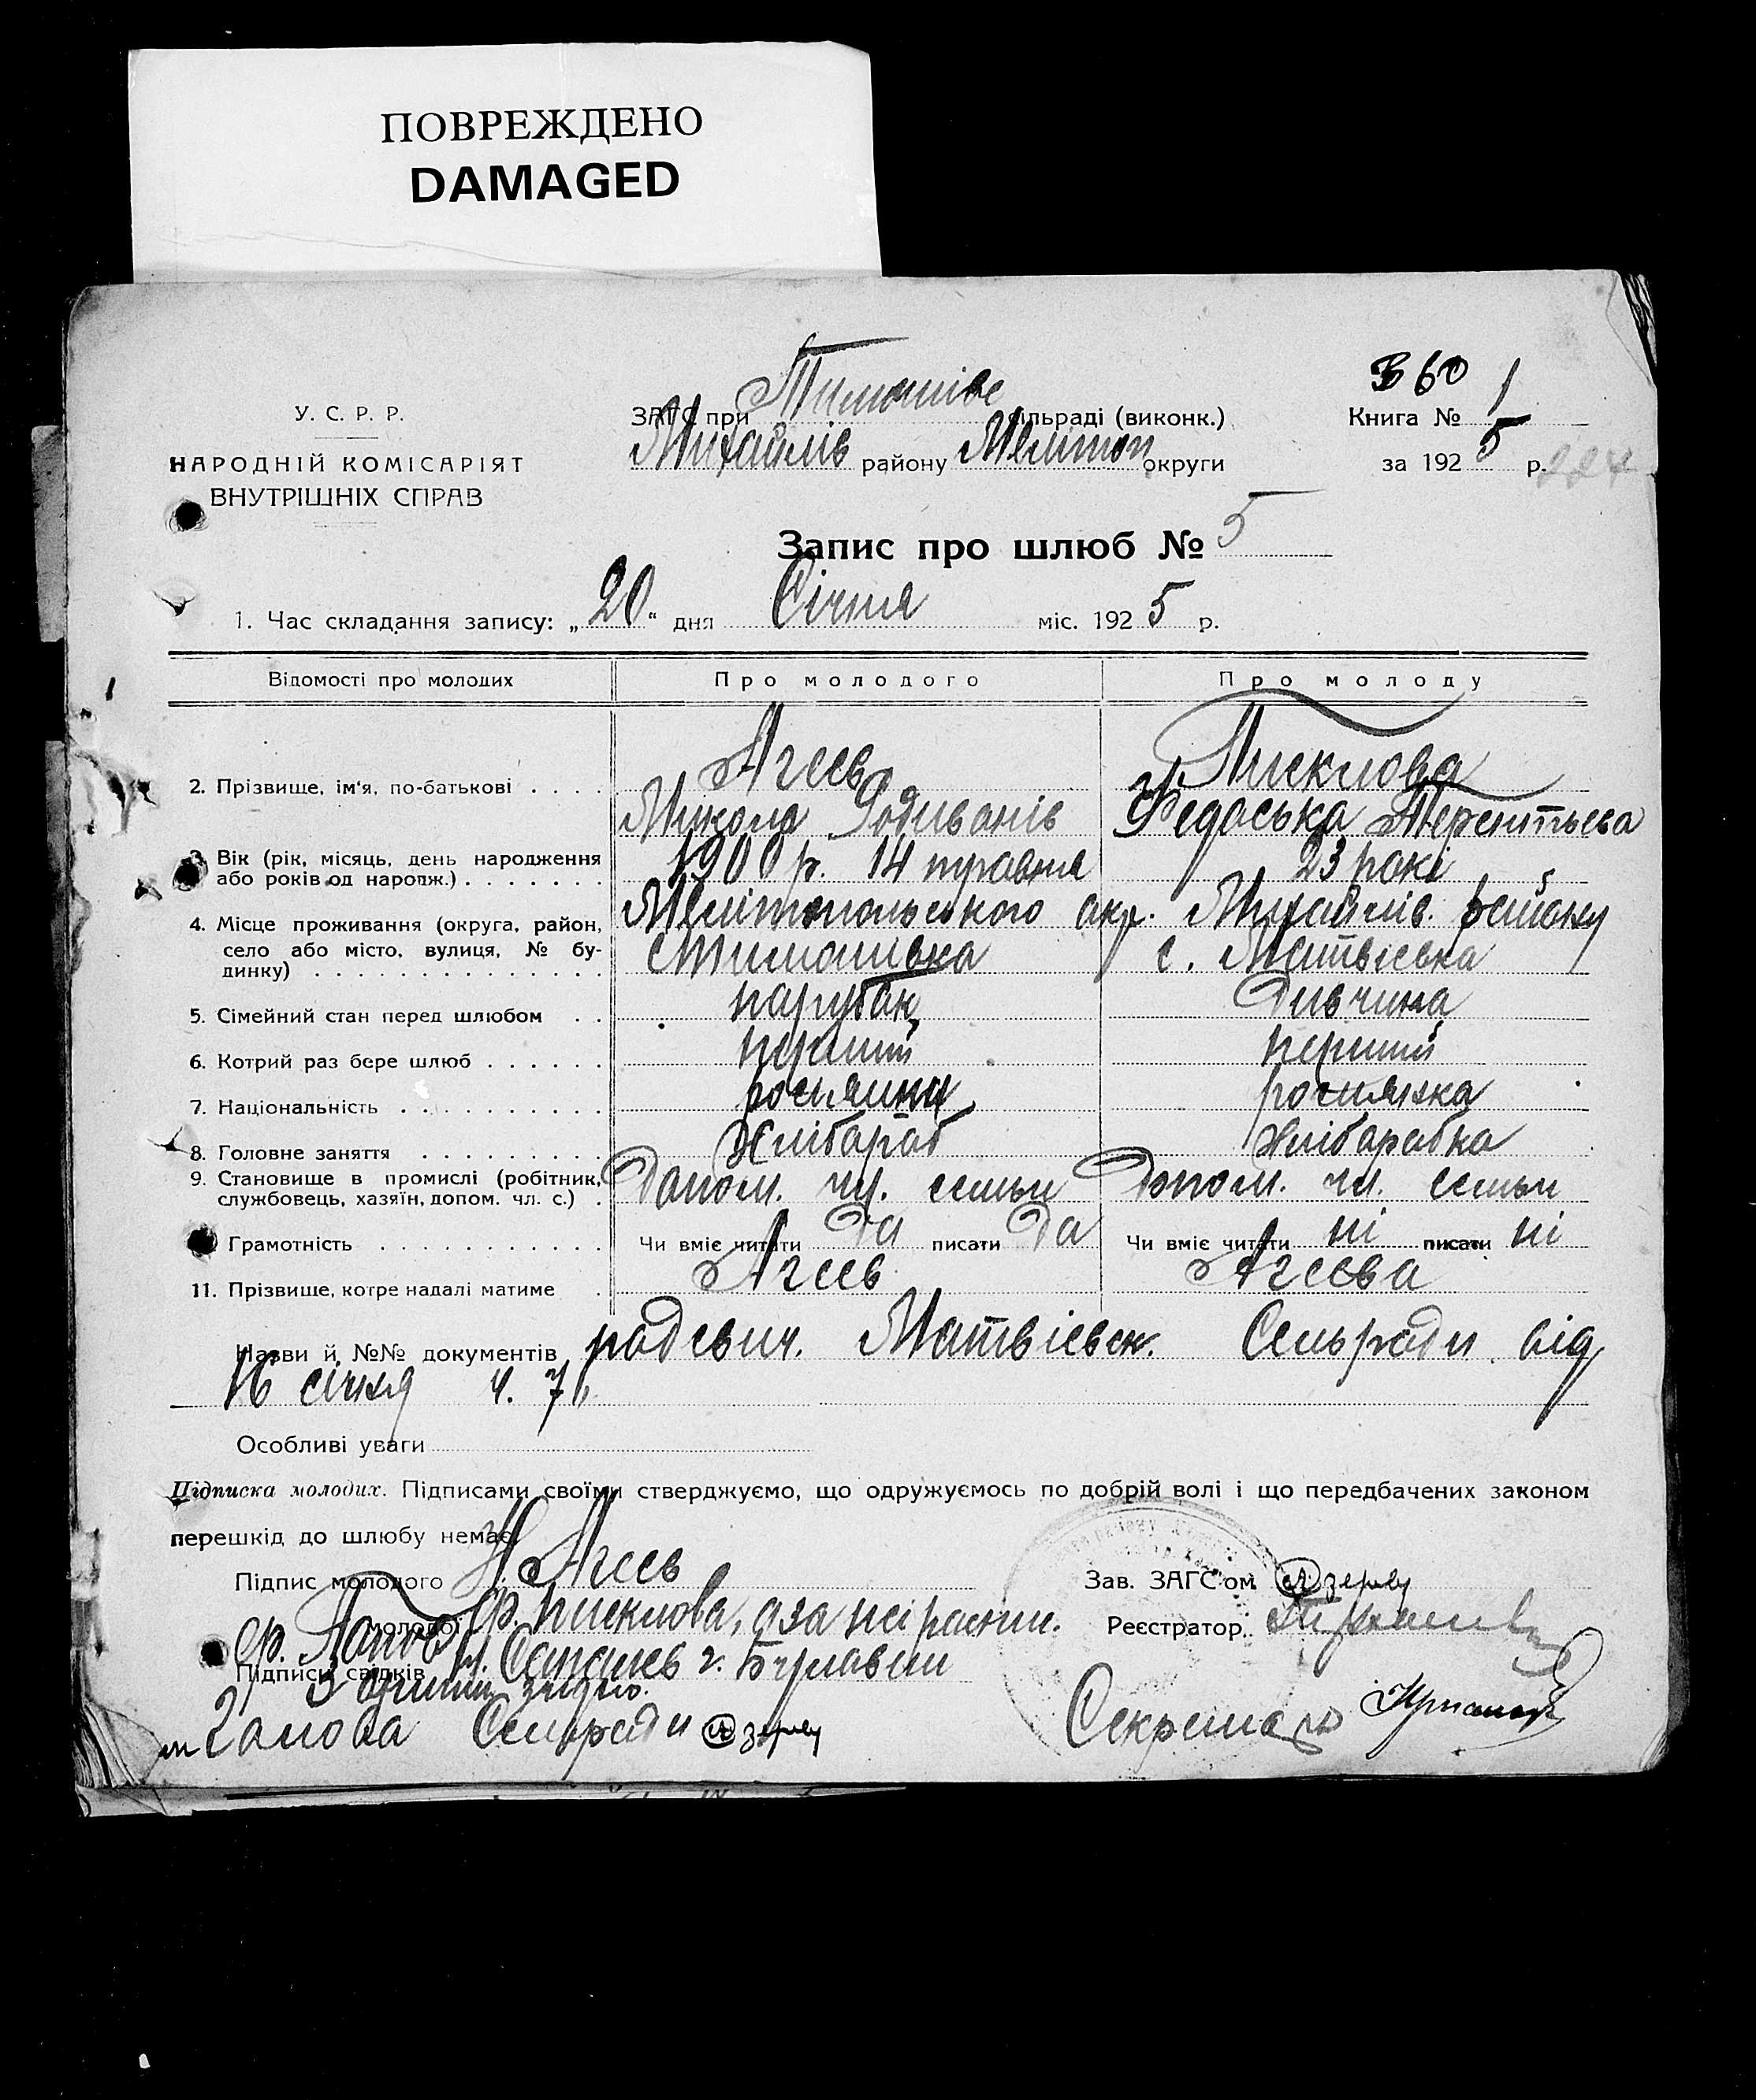 ПОВРЕЖДЕНО
DAMAGED
У. С. Р. Р.
НАРОДНІЙ КОМІСАРІЯТ
ВНУТРІШНІХ СПРАВ
ЗАГС при Тимошівс сільраді (виконк.)
Михайлів району Мелітоп округи
60
Книга № 1
за 1925 р.
224
Запис про шлюб № 5
1. Час складання запису: „20" дня Січня міс. 1925 р.
Відомості про молодих Про молодого Про молоду
2. Прізвище, ім'я, по-батькові Агеєв Пискловa
Микола Родивонів Федоська Терентьева
3. Вік (рік, місяць, день народження або років од народж.) 1900 р. 14 травня 23 рокі
4. Місце проживання (округа, район, село або місто, вулиця, № будинку) Мелітопольського окр. Михайлів. району
Тимошівка с. Матвіевка
5. Сімейний стан перед шлюбом парубок Дивчина
6. Котрий раз бере шлюб перший перший
7. Національність росиянин росиянка
8. Головне заняття Хлібороб Хлібаробка
9. Становище в промислі (робітник, службовець, хазяїн, допом. чл. с.) Допом. чл. семьи Допом. чл. семьи
Грамотність Чи вміє читати Да писати Да Чи вміє читати ні писати ні
11. Прізвище, котре надалі матиме Агеев Агеева
Назви й №№ документів Матвієвск. Сельради від
16 січня ч. 7
Особливі уваги
Підписка молодих. Підписами своїми стверджуємо, що одружуємось по добрій волі і що передбачених законом
перешкід до шлюбу немає.
Підпис молодого Н. Агеев Зав. ЗАГС'ом
молодої Ф. Писклова, а за неї распи. Реєстратор
Ф. Попов
Підписи свідків
З
Голова Сельради Секретарь